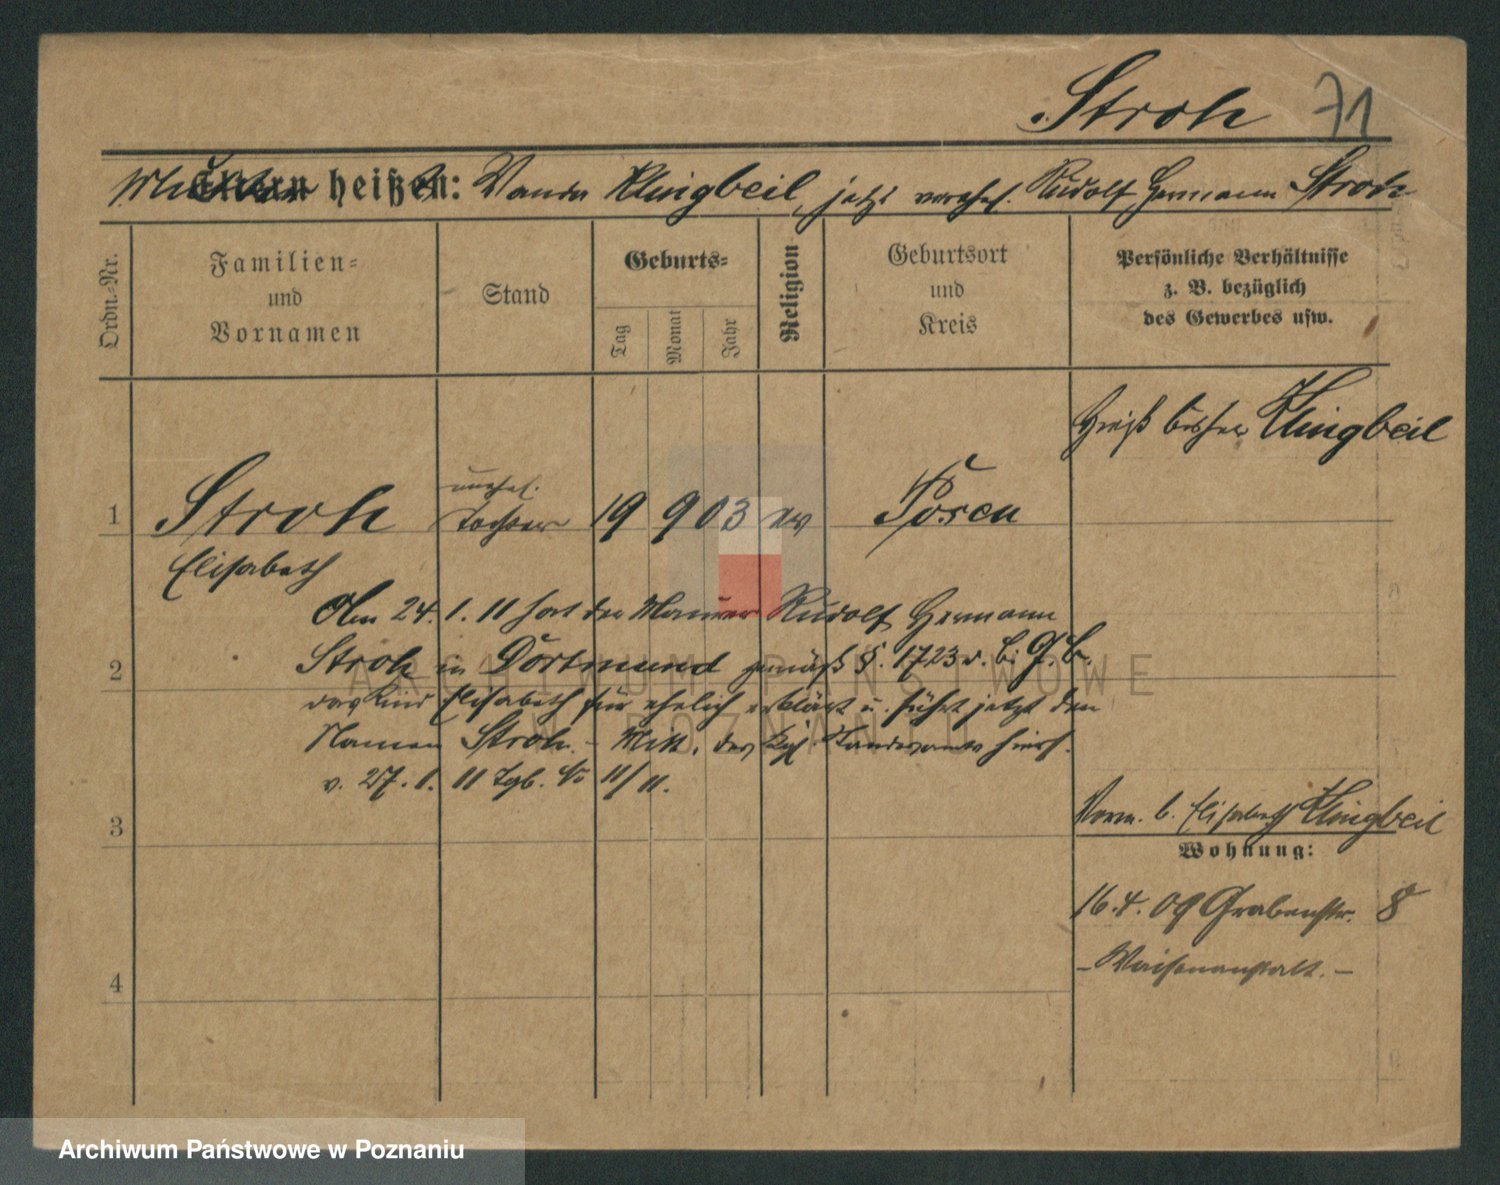 Stroh 71
Mutter heißt: Wanda Klingbeil, jetzt verehel. Rudolf Hermann Stroh
Ordn.-Nr.
Familien-
und
Vornamen
Stand
Geburts-
Tag
Monat
Jahr
Religion
Geburtsort
und
Kreis
Persönliche Verhältnisse
z. B. bezüglich
des Gewerbes usw.
Hieß bisher Klingbeil
unehel.
1 Stroh Tochter 19 9 03 ev Posen
Elisabeth
Am 24. 1. 11 hat der Maurer Rudolf Hermann
2 Stroh in Dortmund gemäß §. 1723 d. B. G. B.
das Kind Elisabeth für ehelich erklärt u. führt jetzt den
Namen Stroh. - Mitt. des Kgl. Standesamts hies.
v. 27. 1. 11 Tgb. No 11/11.
3
Verm. b. Elisabeth Klingbeil
Wohnung:
16. 4. 09 Grabenstr. 8
- Waisenanstalt. -
4
ARCHIWUM PAŃSTWOWE
W POZNANIU
Archiwum Państwowe w Poznaniu